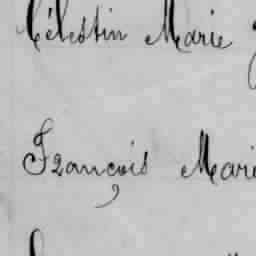 Célestin Marie
François Marie